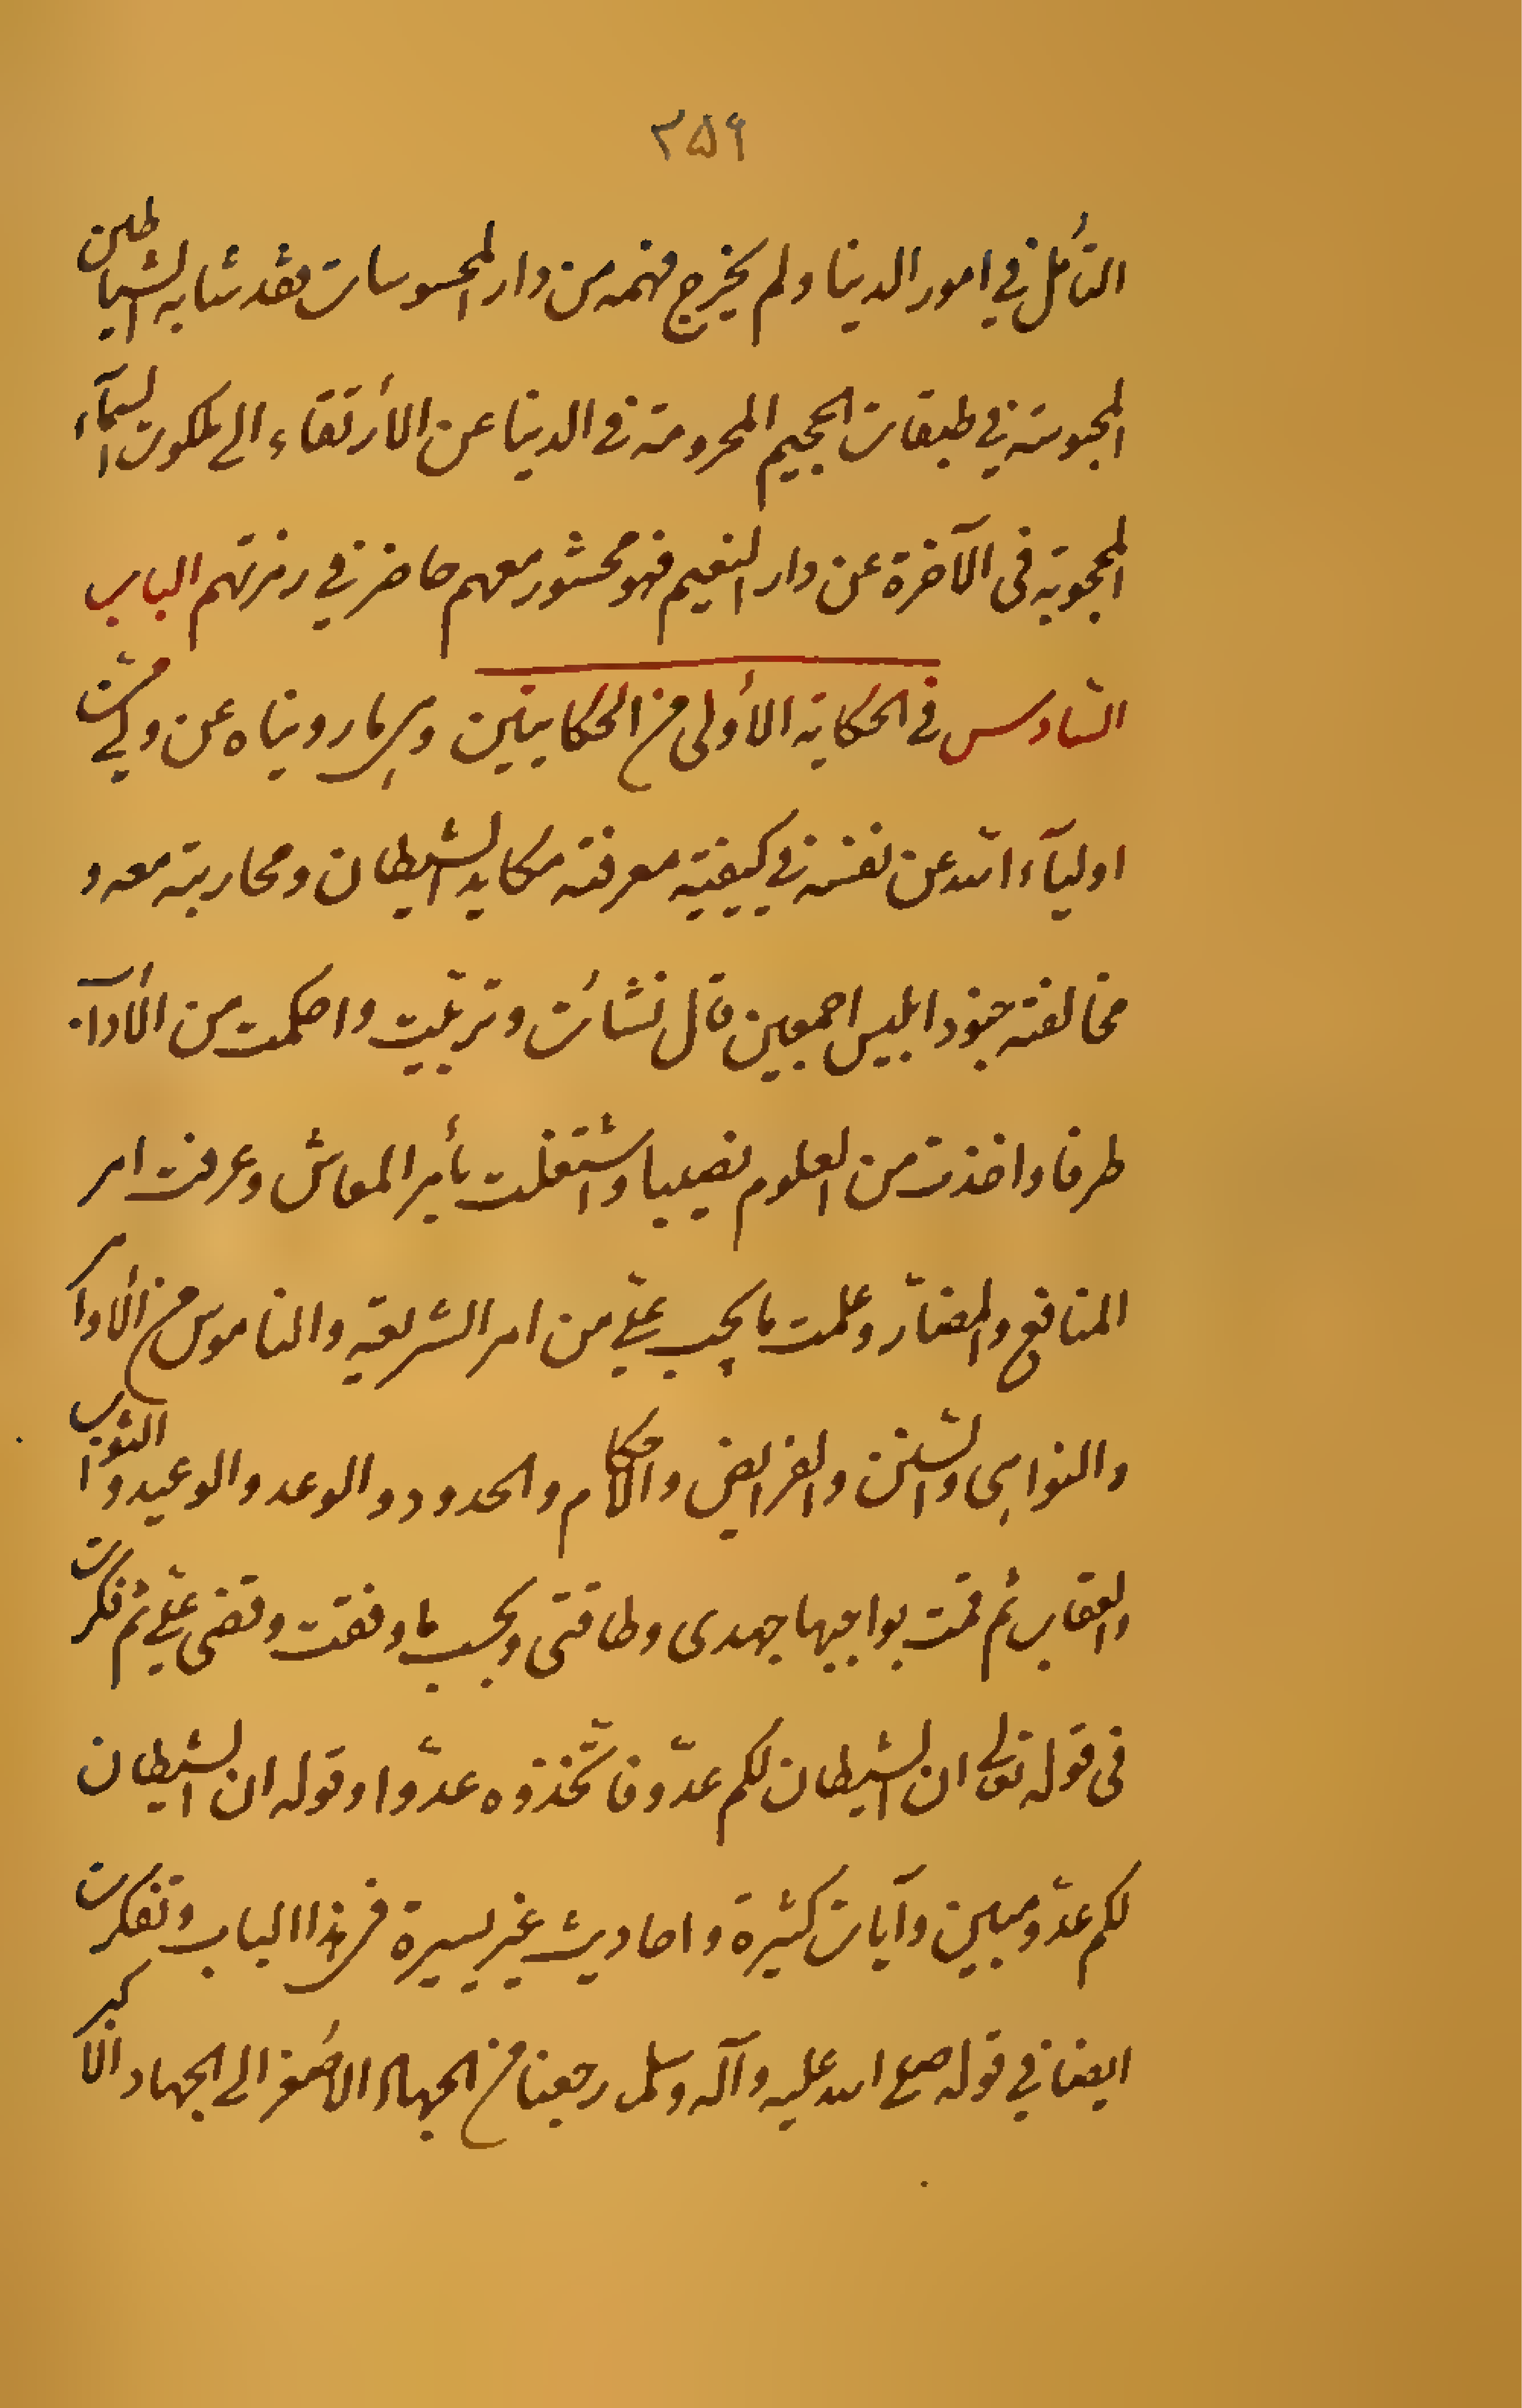 ۳۵۶
التأمل في امور الدنيا ولم يخرج فهمه من دار المحسوسات فقد شابه الشياطين
المحبوسة في طبقات الجحيم المحرومة في الدنيا عن الأرتقاء الى ملكوت السمآء
المحجوبة فى الآخرة عن دار النعيم فهو محشور معهم حاضر في زمرتهم الباب
السّادس في الحكاية الأولى من الحكايتين وهى ما رويناه عن ولىّ من
اوليآء الله عن نفسه في كيفية معرفته مكايد الشيطان ومحاربته معه و
مخالفته جنود ابليس اجمعين قال نشأت وتربّيت واحكمت من الأدآب
طرفا واخذت من العلوم نصيبا واشتغلت بأمر المعاش وعرفت امر
المنافع والمضارّ وعلمت ما يجب علىّ من امر الشريعة والناموس من الأوامر
والنواهى والسّنن والفرايض والاحكام والحدود والوعد والوعيد والثواب
والعقاب ثم قمت بواجبها جهدى وطاقتى وبحسب ما وفقت وقضى علىّ ثم فكرت
فى قوله تعالى ان الشيطان لكم عدّو فاتّخذوه عدّوا وقوله ان الشيطان
لكم عدّو مبين وآيات كثيرة واحاديث غير يسيرة فى هذا الباب وتفكرت
ايضا في قوله صلى الله عليه وآله وسلم رجعنا من الجهاد الأصغر الى الجهاد الأكبر